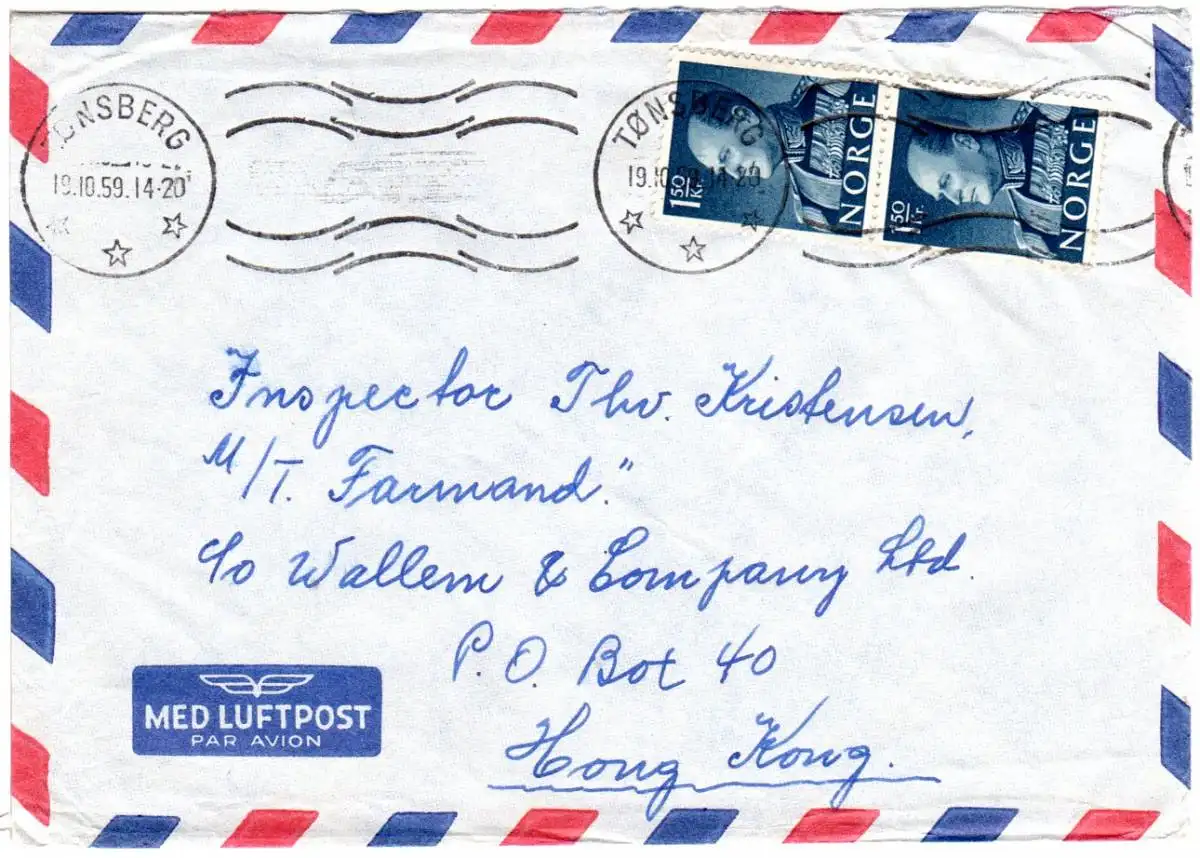 TØNSBERG
19.10.59.14-20
TØNSBERG
19.10.59.14-20
1 50 Kr.
NORGE
1 50 Kr.
NORGE
Inspector Thv. Kristensen,
M/T. Farmand."
c/o Wallem & Company Ltd.
P.O. Bot 40
Hong Kong.
MED LUFTPOST
PAR AVION